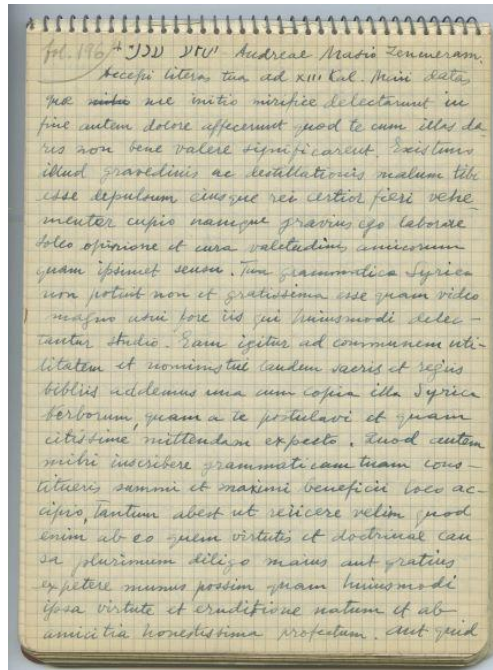 fol. 196 ישוע ענני Andreae Masio Zenneram.
Accepi literas tuas ad XIII Kal. Maii datas
quae me initio mirifice delectarunt in
fine autem dolore affecerunt quod te cum illas da-
res non bene valere significarent. Existimo
illud gravedinis ac destillationis malum tibi
esse depulsum eiusque rei certior fieri vehe-
menter cupio namque gravius ego laborare
soleo opinione et cura valetudinis amicorum
quam ipsimet sensu. Tua grammatica Syrica
non potuit non et gratissima esse quam video
magno usui fore iis qui huiusmodi delec-
tantur studio. Eam igitur ad communem uti-
litatem et nominis tui laudem sacris et regiis
bibliis addemus una cum copia illa Syrica
verborum, quam a te postulavi et quam
citissime mittendam expecto. Quod autem
mihi inscribere grammaticam tuam cons-
titueris summi et maximi beneficii loco ac-
cipio, tantum abest ut reiicere velim quod
enim ab eo quem virtutis et doctrinae cau
sa plurimum diligo maius aut gratius
expetere munus possim quam huiusmodi
ipsa virtute et eruditione natum et ab
amicitia honestissima profectum. aut quid